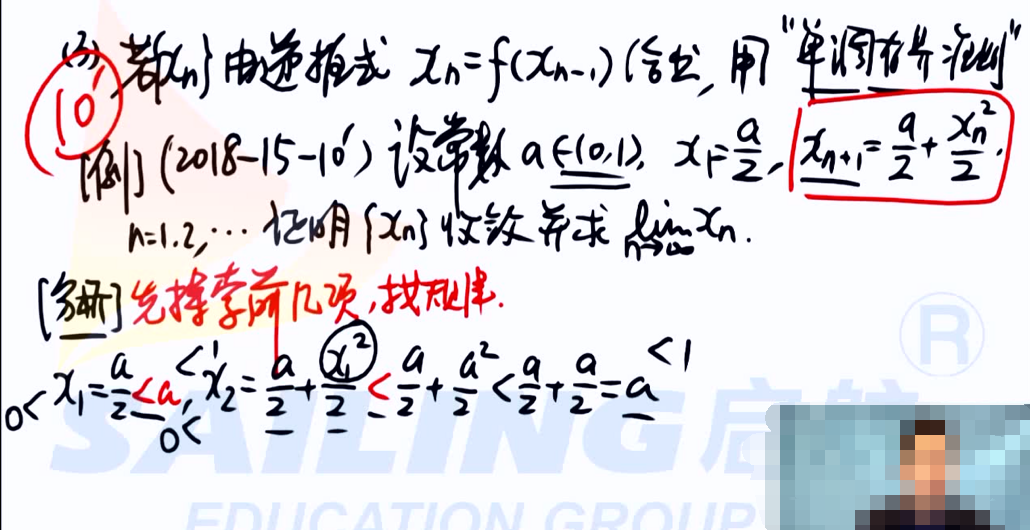 (3) 若{xₙ}由递推式 xₙ=f(xₙ₋₁)给出，用"单调有界准则"
10'
[例] (2018-15-10') 设常数 a∈(0,1), x₁=a/2, xₙ₊₁=a/2+xₙ²/2.
n=1.2,⋯ 证明{xₙ}收敛并求 lim n→∞ xₙ.
[分析] 先 前几项,找规律.
0< x₁=a/2<a<1, 0< x₂=a/2+x₁²/2<a/2+a²/2<a/2+a/2=a<1
SAILING 启航 ®
EDUCATION GROUP